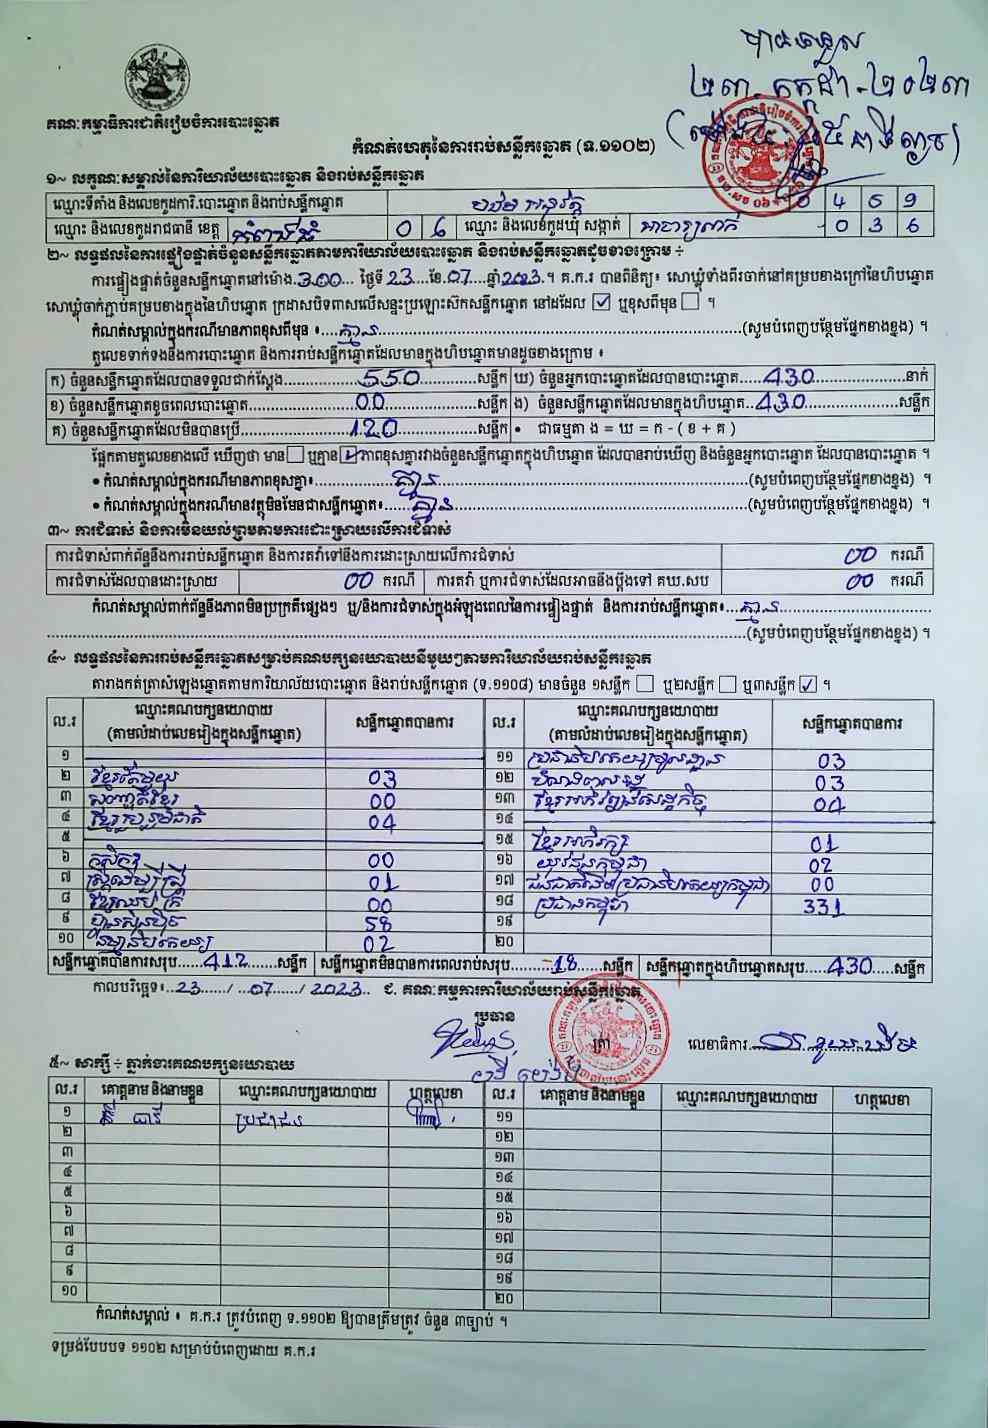 បានទទួល
២៣-កក្កដា-២០២៣
គណៈកម្មាធិការជាតិរៀបចំការបោះឆ្នោត
កំណត់ហេតុនៃការរាប់សន្លឹកឆ្នោត (ទ.១១០២)
១~ លក្ខណៈសម្គាល់នៃការិយាល័យបោះឆ្នោត និងរាប់សន្លឹកឆ្នោត
ឈ្មោះទីតាំង និងលេខកូដការិ.បោះឆ្នោត និងរាប់សន្លឹកឆ្នោត 0 4 5 9
ឈ្មោះ និងលេខកូដរាជធានី ខេត្ត កំពង់ធំ 0 6 ឈ្មោះ និងលេខកូដឃុំ សង្កាត់ 0 3 6
២~ លទ្ធផលនៃការផ្ទៀងផ្ទាត់ចំនួនសន្លឹកឆ្នោតតាមការិយាល័យបោះឆ្នោត និងរាប់សន្លឹកឆ្នោតដូចខាងក្រោម ÷
ការផ្ទៀងផ្ទាត់ចំនួនសន្លឹកឆ្នោតនៅម៉ោង 3:00 ថ្ងៃទី 23 ខែ 07 ឆ្នាំ 2023 ។ គ.ក.រ បានពិនិត្យ៖ សោឃ្លុំទាំងពីរចាក់នៅគម្របខាងក្រៅនៃហិបឆ្នោត
សោឃ្លុំចាក់ភ្ជាប់គម្របខាងក្នុងនៃហិបឆ្នោត ក្រដាសបិទពាសលើសន្ទះប្រឡោះស៊កសន្លឹកឆ្នោត នៅដដែល ☑ ឬខុសពីមុន ☐ ។
កំណត់សម្គាល់ក្នុងករណីមានភាពខុសពីមុន ៖ គ្មាន (សូមបំពេញបន្ថែមផ្នែកខាងខ្នង) ។
តួលេខទាក់ទងនឹងការបោះឆ្នោត និងការរាប់សន្លឹកឆ្នោតដែលមានក្នុងហិបឆ្នោតមានដូចខាងក្រោម ៖
ក) ចំនួនសន្លឹកឆ្នោតដែលបានទទួលជាក់ស្តែង 550 សន្លឹក ឃ) ចំនួនអ្នកបោះឆ្នោតដែលបានបោះឆ្នោត 430 នាក់
ខ) ចំនួនសន្លឹកឆ្នោតខូចពេលបោះឆ្នោត 00 សន្លឹក ង) ចំនួនសន្លឹកឆ្នោតដែលមានក្នុងហិបឆ្នោត 430 សន្លឹក
គ) ចំនួនសន្លឹកឆ្នោតដែលមិនបានប្រើ 120 សន្លឹក • ជាធម្មតា ង = ឃ = ក - ( ខ + គ )
ផ្អែកតាមតួលេខខាងលើ ឃើញថា មាន ☐ ឬគ្មាន ☑ ភាពខុសគ្នារវាងចំនួនសន្លឹកឆ្នោតក្នុងហិបឆ្នោត ដែលបានរាប់ឃើញ និងចំនួនអ្នកបោះឆ្នោត ដែលបានបោះឆ្នោត ។
• កំណត់សម្គាល់ក្នុងករណីមានភាពខុសគ្នា៖ គ្មាន (សូមបំពេញបន្ថែមផ្នែកខាងខ្នង) ។
• កំណត់សម្គាល់ក្នុងករណីមានវត្ថុមិនមែនជាសន្លឹកឆ្នោត៖ គ្មាន (សូមបំពេញបន្ថែមផ្នែកខាងខ្នង) ។
៣~ ការជំទាស់ និងការមិនយល់ព្រមតាមការដោះស្រាយលើការជំទាស់
ការជំទាស់ពាក់ព័ន្ធនឹងការរាប់សន្លឹកឆ្នោត និងការតវ៉ាទៅនឹងការដោះស្រាយលើការជំទាស់ 00 ករណី
ការជំទាស់ដែលបានដោះស្រាយ 00 ករណី ការតវ៉ា ឬការជំទាស់ដែលអាចនឹងប្តឹងទៅ គឃ.សប 00 ករណី
កំណត់សម្គាល់ពាក់ព័ន្ធនឹងភាពមិនប្រក្រតីផ្សេងៗ ឬ/និងការជំទាស់ក្នុងអំឡុងពេលនៃការផ្ទៀងផ្ទាត់ និងការរាប់សន្លឹកឆ្នោត៖ គ្មាន
(សូមបំពេញបន្ថែមផ្នែកខាងខ្នង) ។
៤~ លទ្ធផលនៃការរាប់សន្លឹកឆ្នោតសម្រាប់គណបក្សនយោបាយនីមួយៗតាមការិយាល័យរាប់សន្លឹកឆ្នោត
តារាងកត់ត្រាសំឡេងឆ្នោតតាមការិយាល័យបោះឆ្នោត និងរាប់សន្លឹកឆ្នោត (ទ.១១០៨) មានចំនួន ១សន្លឹក ☐ ឬ២សន្លឹក ☐ ឬ៣សន្លឹក ☑ ។
ល.រ ឈ្មោះគណបក្សនយោបាយ (តាមលំដាប់លេខរៀងក្នុងសន្លឹកឆ្នោត) សន្លឹកឆ្នោតបានការ ល.រ ឈ្មោះគណបក្សនយោបាយ (តាមលំដាប់លេខរៀងក្នុងសន្លឹកឆ្នោត) សន្លឹកឆ្នោតបានការ
១ ១១ ប្រជាធិបតេយ្យមូលដ្ឋាន 03
២ ខ្មែរតែមួយ 03 ១២ 03
៣ សញ្ជាតិខ្មែរ 00 ១៣ ខ្មែរអភិវឌ្ឍន៍សេដ្ឋកិច្ច 04
៤ ខ្មែររួបរួមជាតិ 04 ១៤
៥ ១៥ ខ្មែរអភិរក្ស 01
៦ កសិករ 00 ១៦ យុវជនកម្ពុជា 02
៧ ស្ត្រីដើម្បីស្ត្រី 01 ១៧ ជនជាតិដើមប្រជាធិបតេយ្យកម្ពុជា 00
៨ ខ្មែរឈប់ក្រ 00 ១៨ ប្រជាជនកម្ពុជា 331
៩ ហ៊្វុនស៊ិនប៉ិច 58 ១៩
១០ ធម្មាធិបតេយ្យ 02 ២០
សន្លឹកឆ្នោតបានការសរុប 412 សន្លឹក សន្លឹកឆ្នោតមិនបានការពេលរាប់សរុប 18 សន្លឹក សន្លឹកឆ្នោតក្នុងហិបឆ្នោតសរុប 430 សន្លឹក
កាលបរិច្ឆេទ៖ 23 / 07 / 2023 ជ. គណៈកម្មការការិយាល័យរាប់សន្លឹកឆ្នោត
ប្រធាន
ត្រា លេខាធិការ
៥~ សាក្សី ÷ ភ្នាក់ងារគណបក្សនយោបាយ
ល.រ គោត្តនាម និងនាមខ្លួន ឈ្មោះគណបក្សនយោបាយ ហត្ថលេខា ល.រ គោត្តនាម និងនាមខ្លួន ឈ្មោះគណបក្សនយោបាយ ហត្ថលេខា
១ ប្រជាជន ១១
២ ១២
៣ ១៣
៤ ១៤
៥ ១៥
៦ ១៦
៧ ១៧
៨ ១៨
៩ ១៩
១០ ២០
កំណត់សម្គាល់ ៖ គ.ក.រ ត្រូវបំពេញ ទ.១១០២ ឱ្យបានត្រឹមត្រូវ ចំនួន ៣ច្បាប់ ។
ទម្រង់បែបបទ ១១០២ សម្រាប់បំពេញដោយ គ.ក.រ